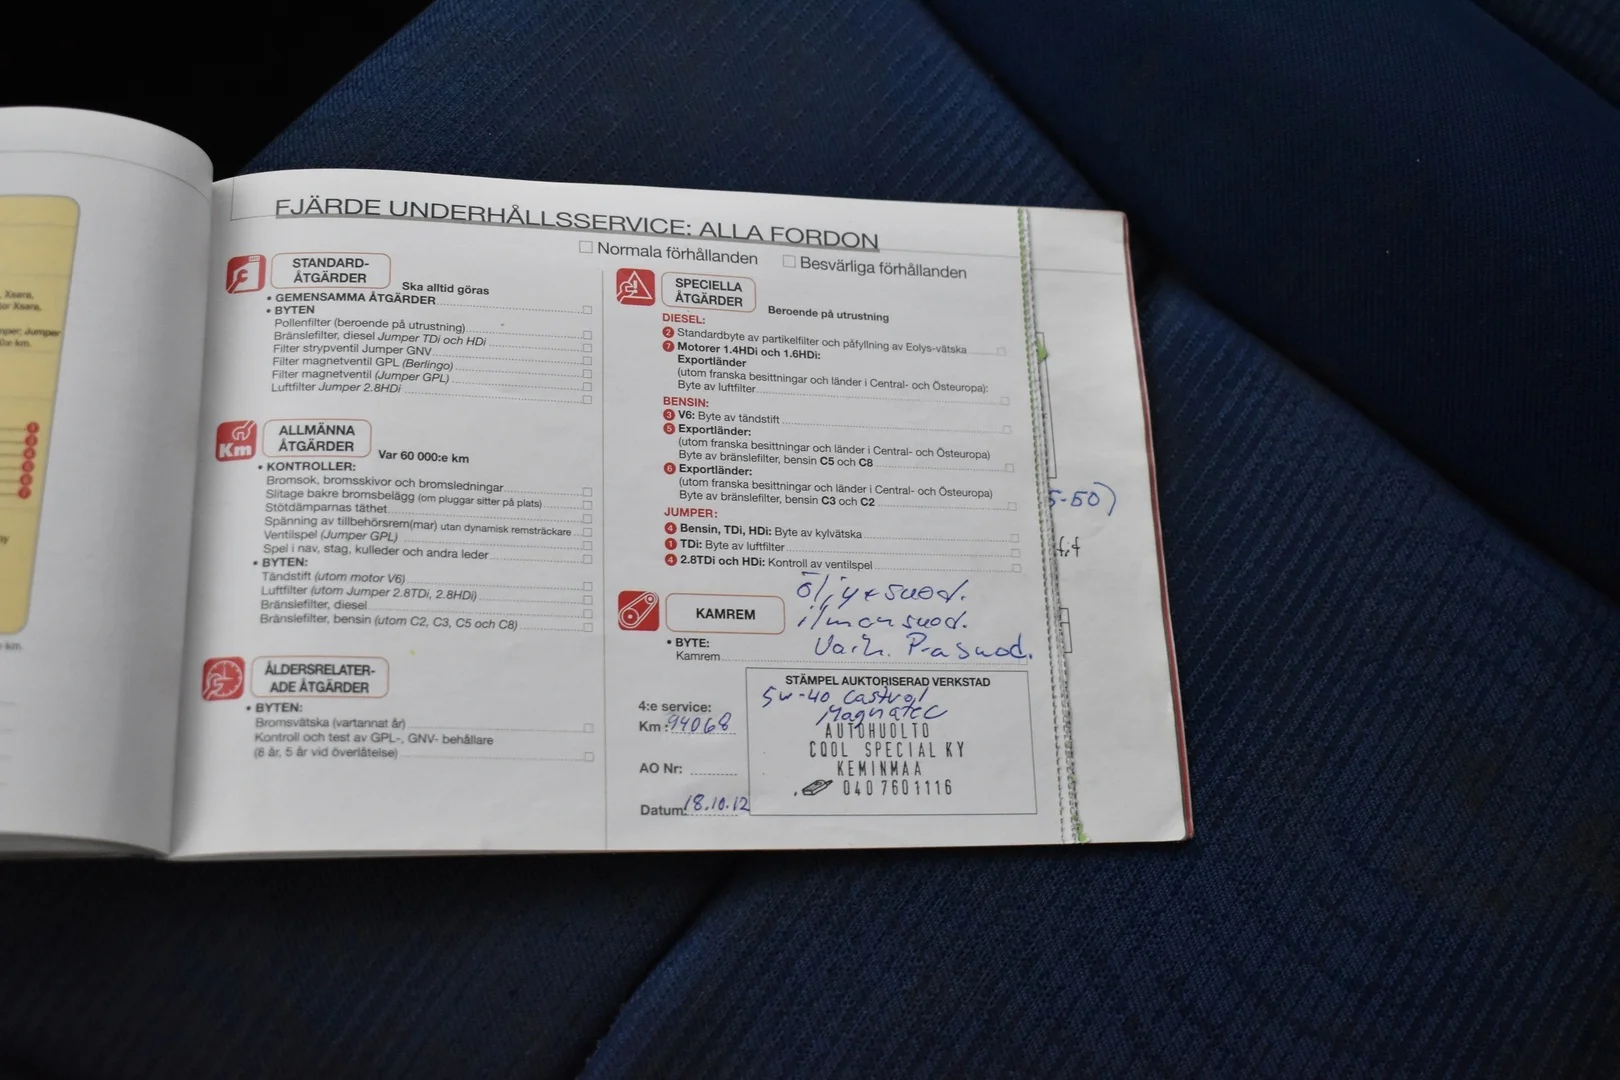 , Xsara,
or Xsara,
mper: Jumper
0:e km.
e km.
FJÄRDE UNDERHÅLLSSERVICE: ALLA FORDON
Normala förhållanden
Besvärliga förhållanden
STANDARD-
ÅTGÄRDER
Ska alltid göras
• GEMENSAMMA ÅTGÄRDER
• BYTEN
Pollenfilter (beroende på utrustning)
Bränslefilter, diesel Jumper TDi och HDi
Filter strypventil Jumper GNV
Filter magnetventil GPL (Berlingo)
Filter magnetventil (Jumper GPL)
Luftfilter Jumper 2.8HDi
Km
ALLMÄNNA
ÅTGÄRDER
Var 60 000:e km
• KONTROLLER:
Bromsok, bromsskivor och bromsledningar
Slitage bakre bromsbelägg (om pluggar sitter på plats)
Stötdämparnas täthet
Spänning av tillbehörsrem(mar) utan dynamisk remsträckare
Ventilspel (Jumper GPL)
Spel i nav, stag, kulleder och andra leder
• BYTEN:
Tändstift (utom motor V6)
Luftfilter (utom Jumper 2.8TDi, 2.8HDi)
Bränslefilter, diesel
Bränslefilter, bensin (utom C2, C3, C5 och C8)
ÅLDERSRELATER-
ADE ÅTGÄRDER
• BYTEN:
Bromsvätska (vartannat år)
Kontroll och test av GPL-, GNV- behållare
(8 år, 5 år vid överlåtelse)
SPECIELLA
ÅTGÄRDER
Beroende på utrustning
DIESEL:
2 Standardbyte av partikelfilter och påfyllning av Eolys-vätska
7 Motorer 1.4HDi och 1.6HDi:
Exportländer
(utom franska besittningar och länder i Central- och Östeuropa):
Byte av luftfilter
BENSIN:
3 V6: Byte av tändstift
5 Exportländer:
(utom franska besittningar och länder i Central- och Östeuropa)
Byte av bränslefilter, bensin C5 och C8
6 Exportländer:
(utom franska besittningar och länder i Central- och Östeuropa)
Byte av bränslefilter, bensin C3 och C2
JUMPER:
4 Bensin, TDi, HDi: Byte av kylvätska
1 TDi: Byte av luftfilter
4 2.8TDi och HDi: Kontroll av ventilspel
öljy+suod.
ilmansuod.
Vaih. Pasuod.
KAMREM
• BYTE:
Kamrem
4:e service:
Km: 94068
AO Nr:
Datum: 18.10.12
STÄMPEL AUKTORISERAD VERKSTAD
5w-40 Castrol
Magnatec
AUTOHUOLTO
COOL SPECIAL KY
KEMINMAA
0407601116
5-50)